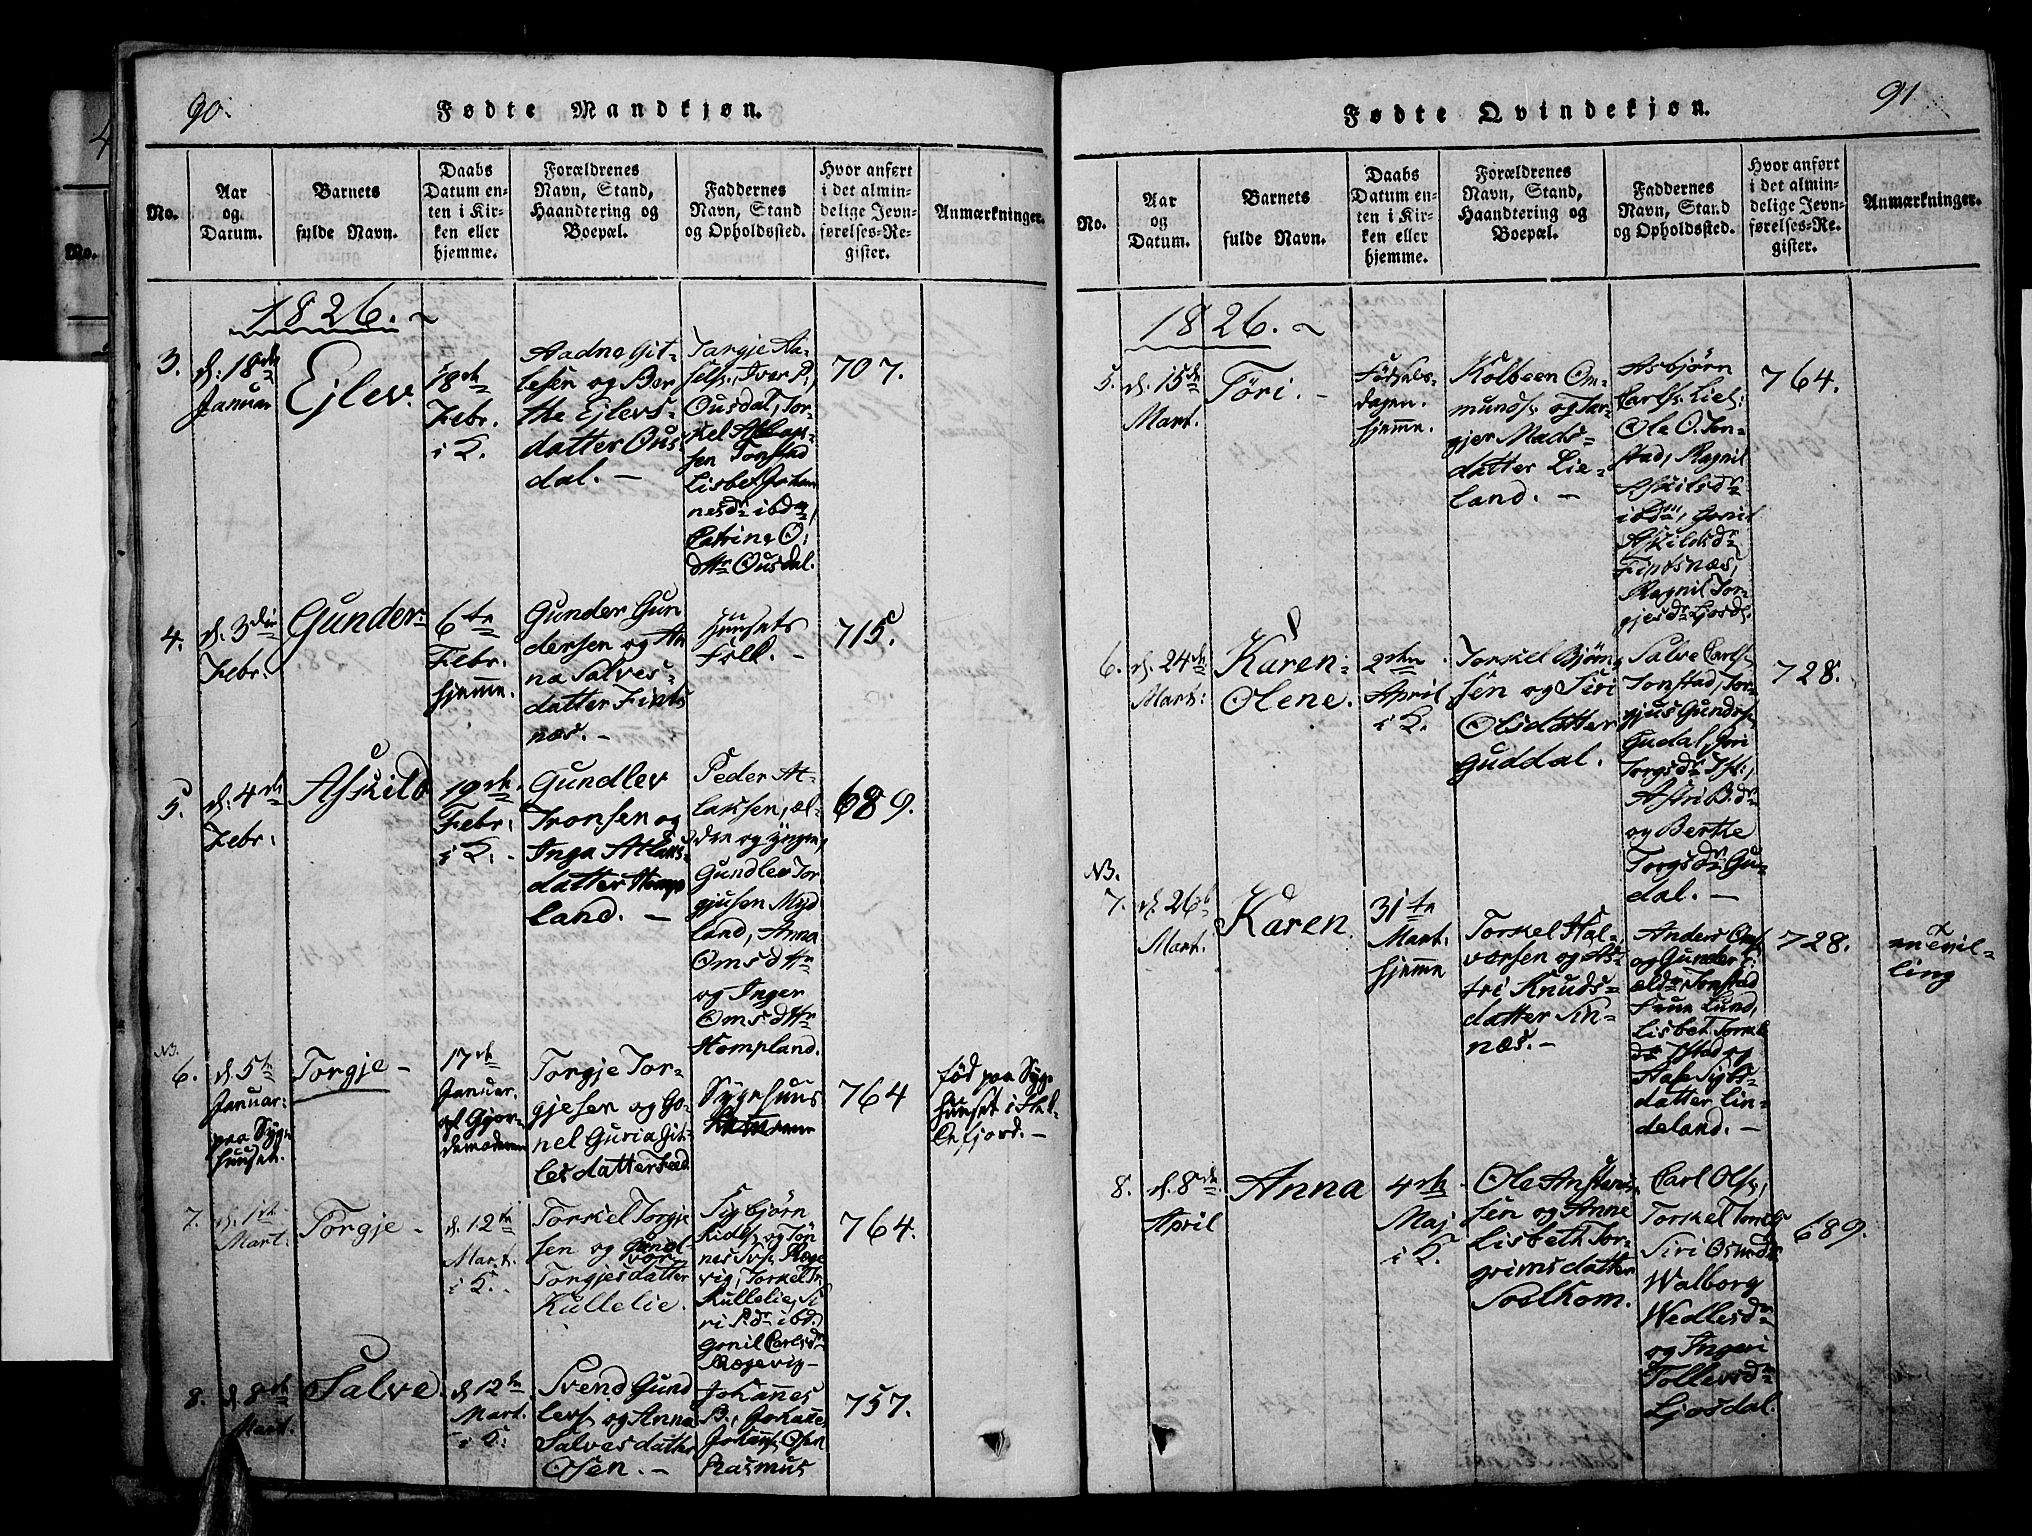 90.
Fødte Mandkjøn.
No.
Aar
og
Datum.
Barnets
fulde Navn.
Daabs
Datum en-
ten i Kir-
ken eller
hjemme.
Forældrenes
Navn, Stand,
Haandtering og
Boepæl.
Faddernes
Navn, Stand
og Opholdssted.
Hvor anført
i det almin-
delige Jevn-
førelses-Re-
gister.
Anmærkninger.
1826.
3.
d: 18de
Januar
Ejlev.
18de
Febr.
i K.
Aadne Git-
lesen og Ber
the Ejlevs-
datter Ous
dal. -
Targje Aa-
Ousdal, Tor-
kel
sen Tonstad
Lisbet Johan
nesdr ibdm,
Catrine O:
dttr Ousdal.
707.
4.
d. 3die
Febr.
Gunder.
6te
Febr.
hjemme.
Gunder Gun
dersen og An
na Salves-
datter Fints
næs. -
Huusets
Folk. -
715.
5.
d: 4de
Febr:
Askild
19de
Febr:
i K. -
Gundlev
Tronsen og
Inga Atlaks-
datter Homp
land. -
Peder At-
laksen, æl-
dre og yngre,
Gundlev Tor
gjusen Myd
land, Anna
Omsdttr
og Inger
Omsdttr
Hompland.
689.
NB.
6.
d. 5te
Januar:
paa Syge
huuset.
Torgje -
17de
Januar.
af Gjor-
demoderen
Torgje Tor-
gjesen og Go-
nel Guria Git-
lesdatter
Sygehuus
764
født paa Syge
huuset i Fle-
kefjord. -
7.
d. 1ste
Mart:
Torgje -
d. 12te
Mart.
i K. -
Torkel Torgje
sen og
Torgjesdatter
Kullelie.
Sigbjørn
vig, Torkel T.
Kullelie, Si
ri P.dr ibd.
Gonil Carlsdr
Rægevig -
764.
8.
d. 8de
Mart.
Salve
d. 12te
Mart.
i K.
Svend Gund
levs. og Anna
Salvesdatter
Osen. -
Johannes
B., Johannes
Johans. Osen
Rasmus
757.
91
Fødte Qvindekjøn.
No.
Aar
og
Datum.
Barnets
fulde Navn.
Daabs
Datum en-
ten i Kir-
ken eller
hjemme.
Forældrenes
Navn, Stand,
Haandtering og
Boepæl.
Faddernes
Navn, Stand
og Opholdssted.
Hvor anført
i det almin-
delige Jevn-
førelses-Re-
gister.
Anmærkninger.
1826.
5.
d. 15de
Mart.
Töri. -
Fødsels-
dagen.
hjemme.
Kolbeen Om-
munds. og Tar-
gjer Mads-
datter Lie-
land. -
Asbjørn
Carls. Liel:
Ole O. Ton-
stad, Ragnil
Askilsdr
ibdm, Gonil
Askildsdr
Fintsnæs,
Ragnil Tor-
gjesdr Ljosd.
764.
6.
d. 24de
Mart:
Karen
Olene.
2den
April
i K.
Torkel Bjørn
sen og Siri
Olsdatter
Guddal.
Salve Carls.
Tonstad, Tor-
gjus Gunders.
Gudal,
Torgsdr
Astri B.dr
og Berthe
Torgsdr Gu-
dal. -
728.
NB.
7.
d. 26de
Mart.
Karen
31te
Mart.
hjemme
Torkel Hal-
vorsen og As-
tri Knuds-
datter Sin-
næs. -
Anders Oms.
og Gunder
ældr. Tonstad
Fruе Lund,
Lisbet Torkels
og
Aase Sigbs-
datter Lin-
deland. -
728.
en Tvil-
ling
8.
d. 8de
April
Anna
4de
Maj
i K.
Ole Anstens-
sen og Anne
Lisbeth Tor-
grimsdatter
Soelhom.
Carl Ols.,
Torkel
Siri Osmdr
Walborg
Wedlesdr
og Ingeri
Tollevsdr
Ljosdal.
689.